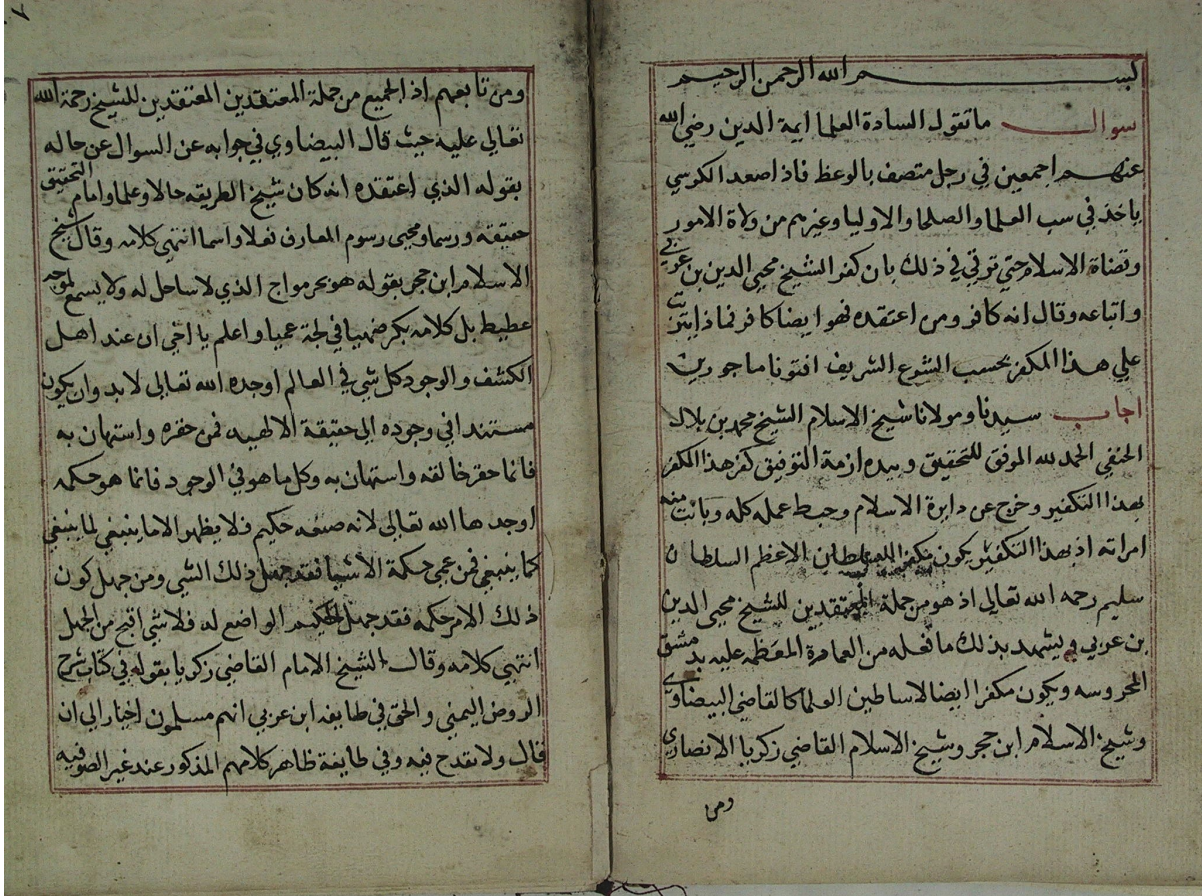 بسم الله الرحمن الرحيم
سوال ما تقول السادة العلما ايمة الدين رضي الله
عنهم اجمعين في رجل متصف بالوعظ فاذا صعد الكرسي
ياخذ في سب العلما والصلحا والاوليا وغيرهم من ولاة الامور
وقضاة الاسلام حتي ترقي في ذلك بان كفر الشيخ محيي الدين بن عربي
واتباعه وقال انه كافر ومن اعتقده فهو ايضا كافر فماذا يترتب
علي هذا المكفر بحسب الشرع الشريف افتونا ماجورين
اجاب سيدنا ومولانا شيخ الاسلام الشيخ محمد بن بلال
الحنفي الحمد لله الموفق للتحقيق وبيده ازمة التوفيق كفر هذا المكفر
بهذا التكفير وخرج عن دايرة الاسلام وحبط عمله كله وبانت منه
امراته اذ بهذا التكفير يكون مكفر السلطان الاعظم السلطان
سليم رحمه الله تعالي اذ هو من جملة المعتقدين للشيخ محيي الدين
بن عربي ويشهد بذلك ما فعله من العمارة المعظمه عليه بدمشق
المحروسه ويكون مكفرا ايضا لاساطين العلما كالقاضي البيضاوي
وشيخ الاسلام ابن حجر وشيخ الاسلام القاضي زكريا الانصاري
ومن
ومن تابعهم اذ الجميع من جملة المعتقدين المعتقدين للشيخ رحمة الله
تعالي عليه حيث قال البيضاوي في جوابه عن السوال عن حاله
بقوله الذي اعتقده انه كان شيخ الطريقه حالا وعلما وامام التحقيق
حقيقه ورسما ومحيي رسوم المعارف فعلا واسما انتهي كلامه وقال شيخ
الاسلام ابن حجر بقوله هو بحر مواج الذي لا ساحل له ولا يسمع لموجه
عطيط بل كلامه بكر في لجة عميا واعلم يا اخي ان عند اهل
الكشف والوجود كل شي في العالم اوجده الله تعالي لا بد وان يكون
مستندا في وجوده الي حقيقة الالهيه فمن حقره واستهان به
فانما حقر خالقه واستهان به وكل ما هو في الوجود فانما هو حكمه
اوجدها الله تعالي لانه صنعه حكيم فلا يظهر الا ما ينبغي لما ينبغي
كما ينبغي فمن عمي حكمة الاشيا فقد جهل ذلك الشي ومن جهل كون
ذلك الامر حكمه فقد جهل الحكيم الواضع له فلا شي اقبح من الجهل
انتهي كلامه وقال الشيخ الامام القاضي زكريا بقوله في كتاب شرح
الروض اليمني والحق في طايفه ابن عربي انهم مسلمون اخيار الي ان
قال ولا نقدح فيه وفي طايفة ظاهر كلامهم المذكور عند غير الصوفيه